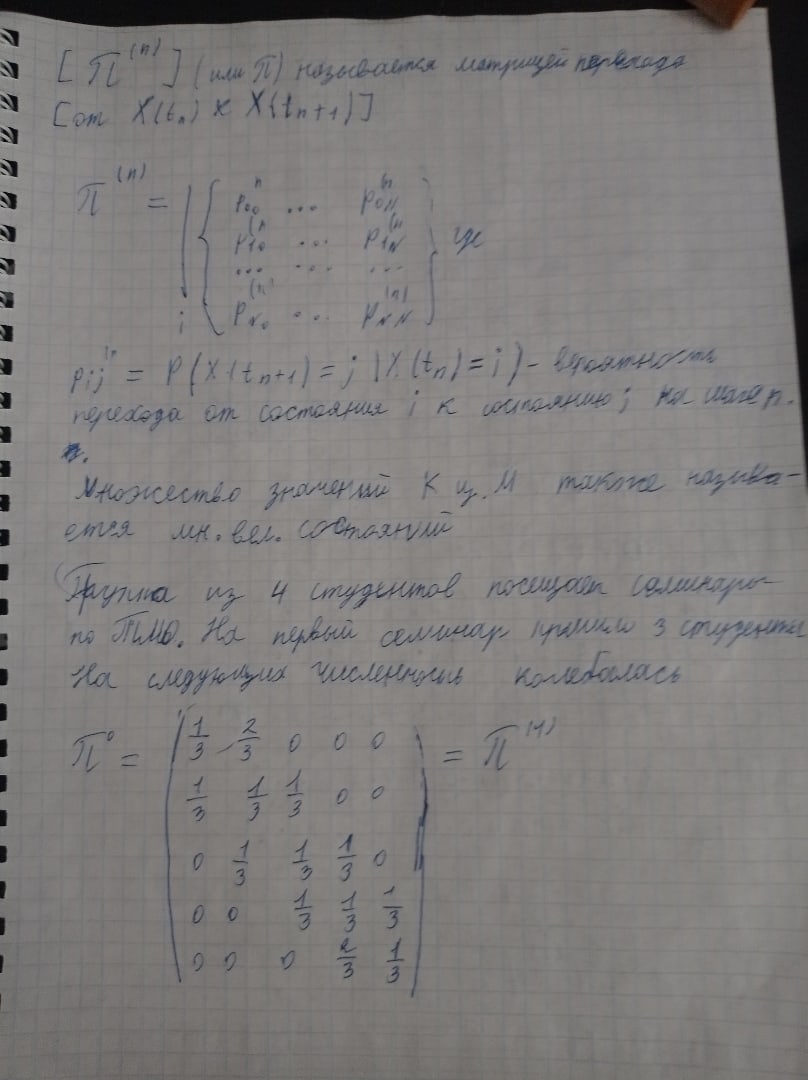 [ П^(n) ] (или П) называется матрицей перехода
[от X(t_n) к X(t_n+1)]
П^(n) = i { p_00^n ... p_0N^(n } где
p_10^(n ... p_1N^(n
... ... ...
p_N0^(n) ... p_NN^(n)
p_ij^(n = P(X(t_n+1) = j | X(t_n) = i) – вероятность
перехода от состояния i к состоянию j на шаге n.
Множество значений К ц. М также называ-
ется мн. вел. состояний
Группа из 4 студентов посещает семинары
по ТМО. На первый семинар пришло 3 студента
На следующих численность колебалась
П^0 = ( 1/3 2/3 0 0 0 ) = П^(1)
1/3 1/3 1/3 0 0
0 1/3 1/3 1/3 0
0 0 1/3 1/3 1/3
0 0 0 2/3 1/3